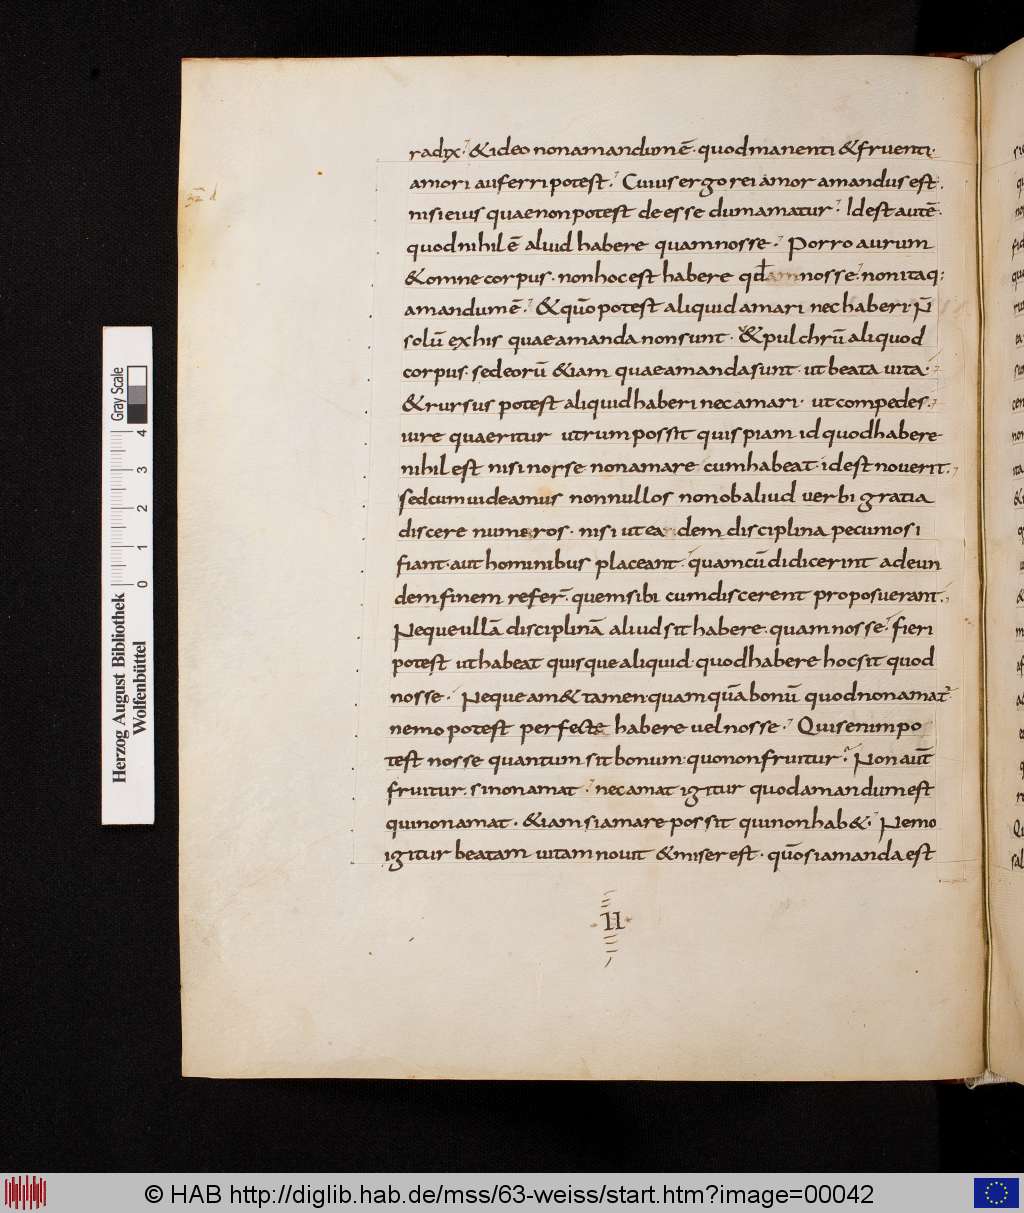 radix; & ideo non amandum ē· quod manenti & fruenti·
amori auferri potest; Cuius ergo rei amor amandus est·
nisi eius quae non potest deesse dum amatur; Id est autē·
quod nihil ē aliud habere quam nosse; Porro aurum
& omne corpus· non hoc est habere qđ nosse; non itaq;
amandum ē; & quō potest aliquid amari nec haberi ñ
solū ex his quae amanda non sunt· & pulchrū aliquod
corpus· sed eorū &iam quae amanda sunt· ut beata uita·
& rursus potest aliquid haberi nec amari· ut compedes·
iure quaeritur utrum possit quispiam id quod habere
nihil est nisi nosse non amare cum habeat· id est nouerit·
sed cum uideamus nonnullos non ob aliud uerbi gratia
discere numeros· nisi ut ea dem disciplina pecuniosi
fiant· aut hominibus placeant· quam cū didicerint ad eun
dem finem refer̄· quem sibi cum discerent proposuerant·
Neque ullā disciplinā aliud sit habere· quam nosse; fieri
potest ut habeat quisque aliquid· quod habere hoc sit quod
nosse· Neque am& tamen· quam quā bonū quod non amat̄·
nemo potest perfecte habere uel nosse; Quis enim po
test nosse quantum sit bonum· quo non fruitur; Non aut̄
fruitur· si non amat; nec amat igitur quod amandum est
qui non amat· &iam si amare possit qui non hab&; Nemo
igitur beatam uitam nouit & miser est· quō si amanda est
II
Herzog August Bibliothek
Wolfenbüttel
0 1 2 3 4
Gray Scale
© HAB http://diglib.hab.de/mss/63-weiss/start.htm?image=00042